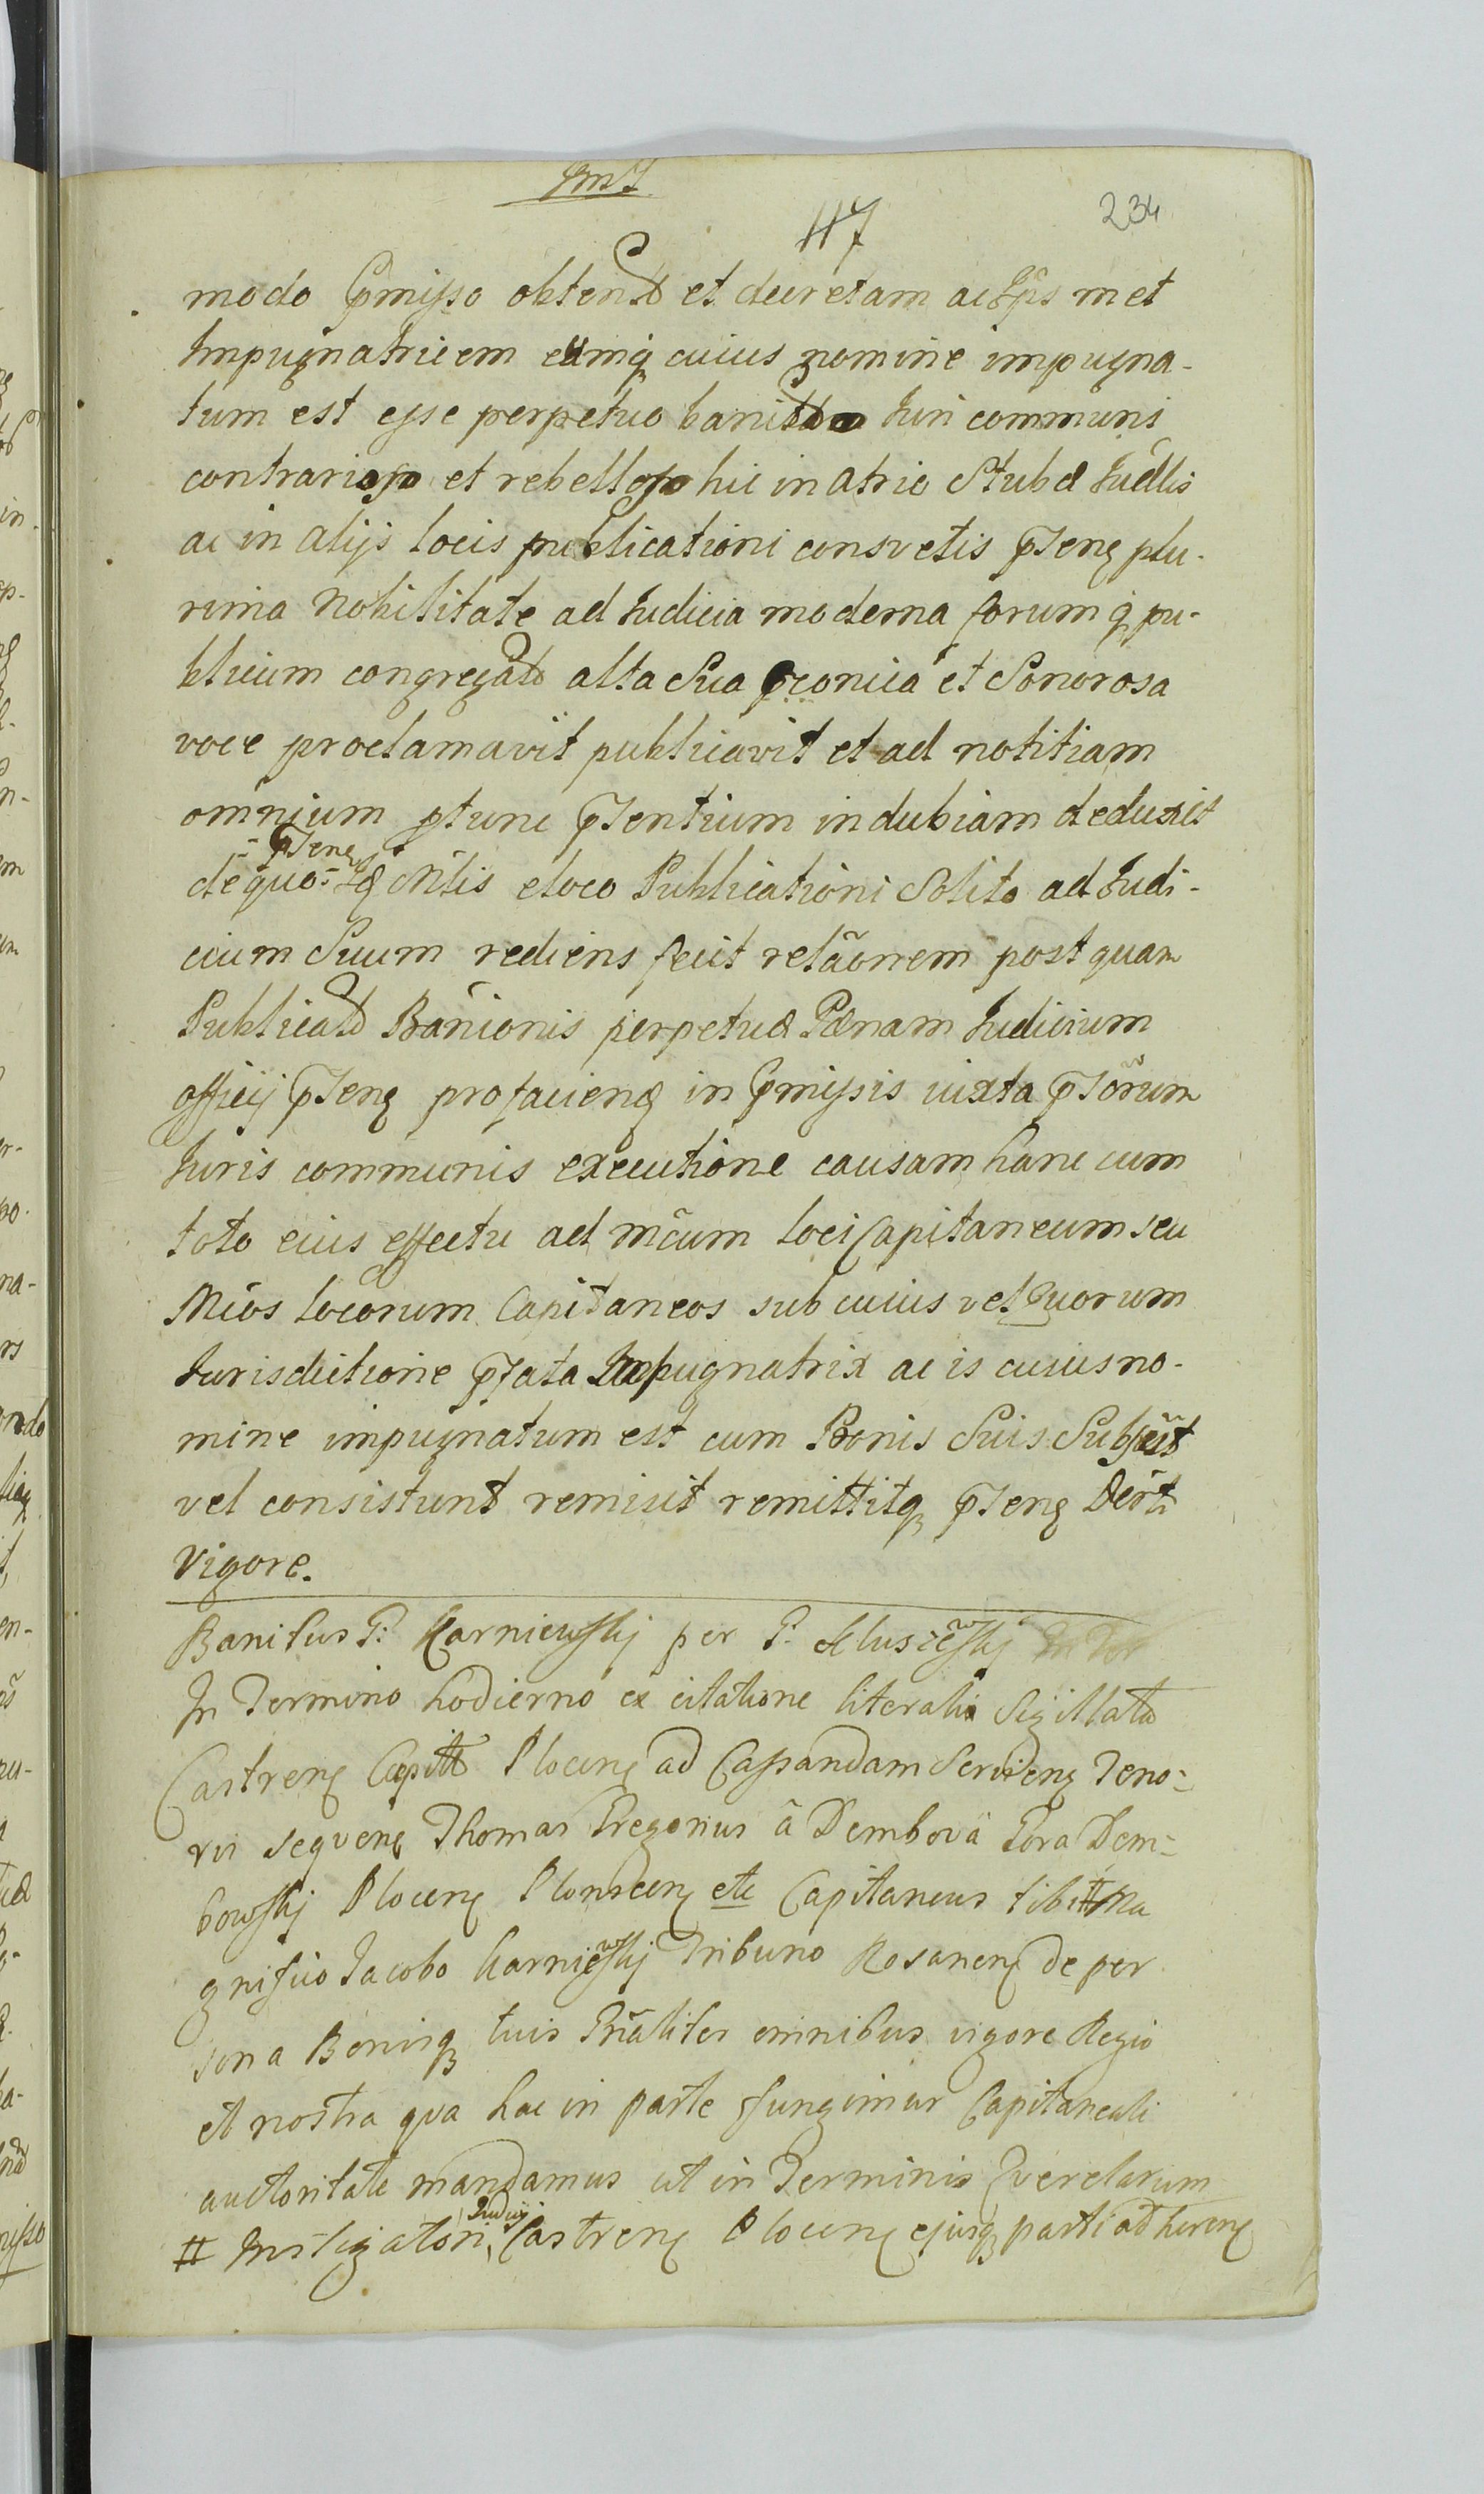 117
234
modo praemisso obtent et decretam ac Ipsmet
Impugnatricem eumq cuius nomine impugna-
tum est esse perpetuo banit Iuri communi
contrario et rebell hic in atrio Stubæ Iudlis
ac in alijs locis publicationi consvetis pnt plu-
rima Nobilitate ad Iudicia moderna forumq pu-
blicum congregat alta Sua et Sonorosa
voce proclamavit publicavit et ad notitiam
omnium ptunc pntentium indubiam deduxit
de quo Nlis eloco Publicationi Solito ad Iudi-
cium Suum rediens fecit relãonem post quam
Publicat Banionis perpetuæ Pænam Iudicium
officij pnt pro faciend in præmissis iuxta
Iuris communis executione causam hanc cum
toto eius effectu ad mcum loci Capitaneum seu
Mcos locorum Capitaneos sub cuius vel quorum
Iurisdictione pfata Impugnatrix ac is cuius no-
mine impugnatum est cum Bonis Suis
vel consistunt remisit remittitq pnt Dcrti
Vigore.
Banitus P: Karniewskj per P: Klusiewskj
In Termino hodierno ex citatione literali Sigillata
Castren Capitt Plocen ad Cassandam Servien Teno-
ris sequen Thomas Gregorius â Dembova Gora Dem-
bowskj Plocen Plonscen etc Capitaneus tibi # Ma
gnifico Jacobo Karniewskj Tribuno Rosanen de per
sona Bonisq tuis Gnãliter omnibus vigore Regio
et nostra qva hac in parte fungimur Capitaneali
auctoritate mandamus ut in Terminis Qverelarum
# Instigatori Iudicij Castren Plocen ejusq parti adhæren